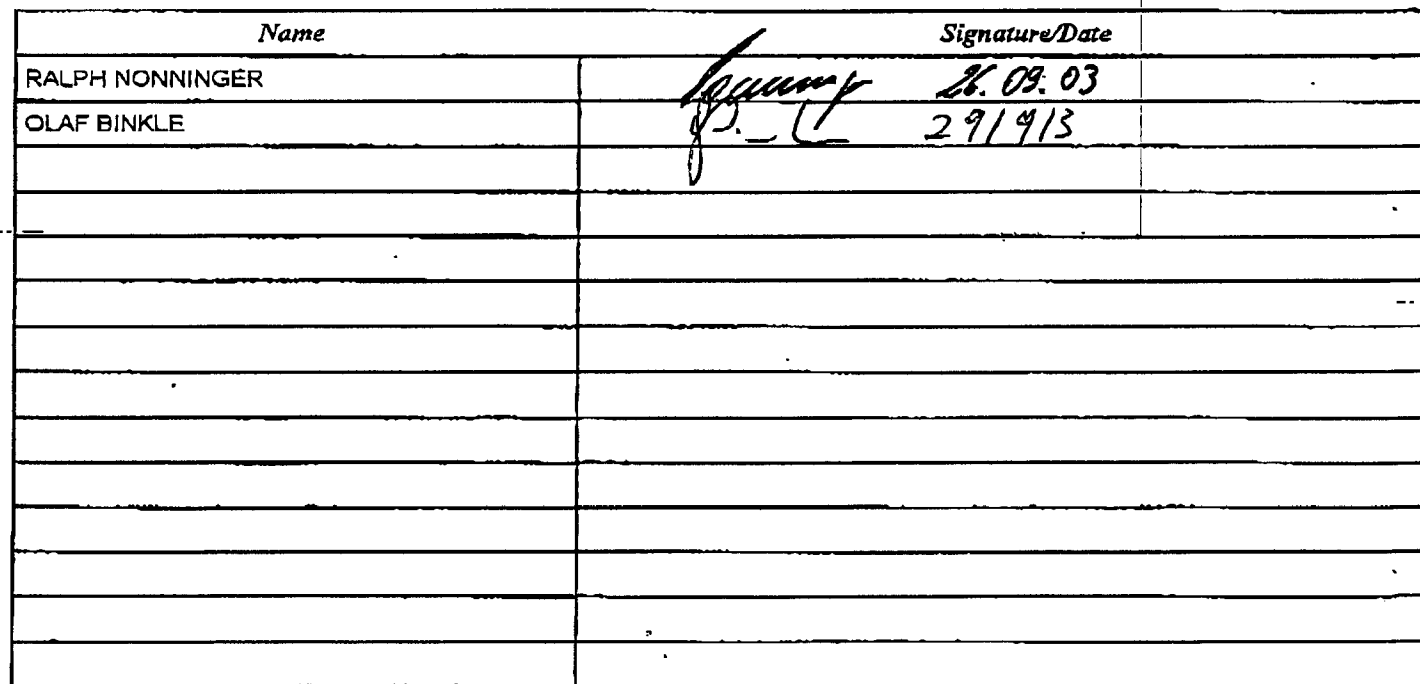 Name Signature/Date
RALPH NONNINGER 26.09.03
OLAF BINKLE 29/9/3